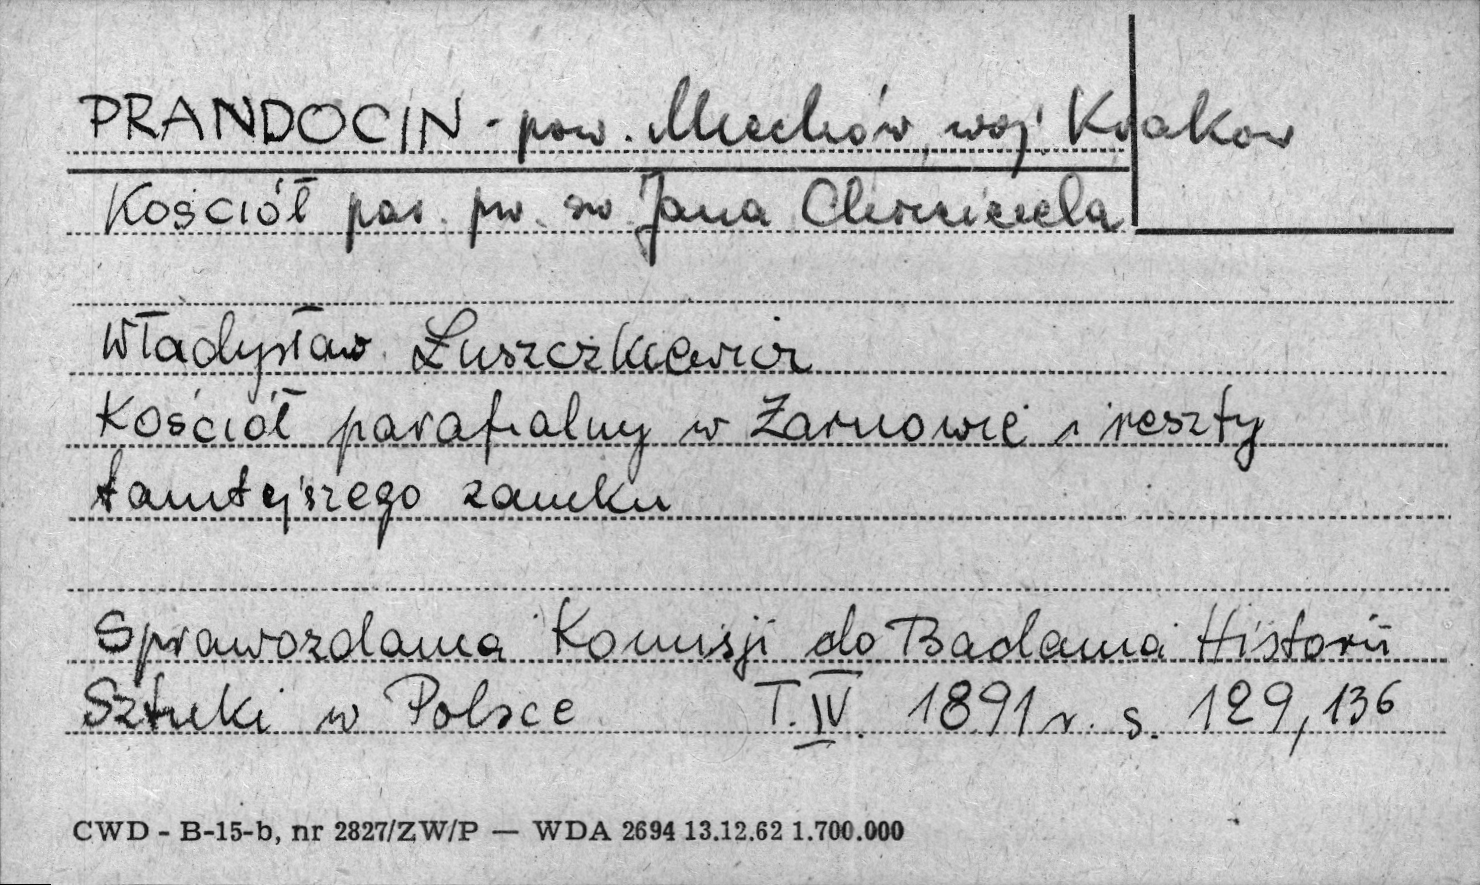 PRANDOCIN - pow. Miechów, woj. Krakow
Kościół par. pw. św. Jana Chrzciciela
Władysław Łuszczkiewicz
Kościół parafialny w Żarnowie i reszty
tamtejszego zamku
Sprawozdania Komisji do Badania Historii
Sztuki w Polsce T. IV. 1891 r. s. 129, 136
CWD - B-15-b, nr 2827/ZW/P — WDA 2694 13.12.62 1.700.000